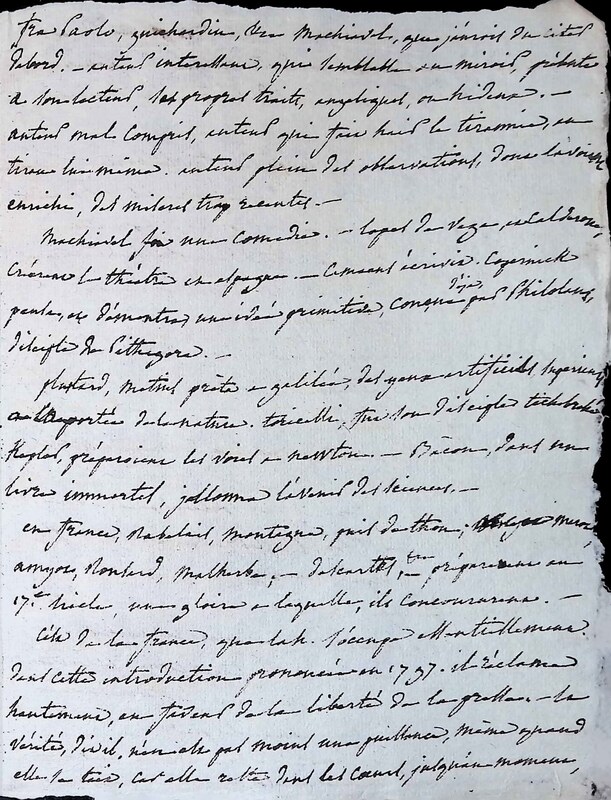 fra Paolo, guichardin, et Machiavel, que j'aurois du citer
d'abord. – auteur interessant, qui semblable au miroir, présente
a son lecteur, ses propres traits, angeliques, ou hideux. –
auteur mal compris, auteur qui fait haïr la tirannie, au
tiran lui même. auteur plein des observations, dont la voient
enrichi, des miseres trop recentes. –
Machiavel fit une comedie. – lopes de vega, et Calderone,
Créerent le théatre en espagne. – Camoens écrivit. Copernick
pensa, et démontra, une idée primitive, conçue déja, par Philolaus,
disciple de Pithagore. –
plustard, Metius prète a galilée, des yeux artificiels superieurs
a la portée de la nature. toricelli, fut son disciple tichobrahé
Kepler, préparoient les voies a newton. – Bacon, dans un
livre immortel, jallonna l'avenir des sciences. –
en france, Rabelais, montagne, puis de thou,
amyot, Ronsard, Malherbe, – descartes, préparerent au
17.e siecle une gloire a laquelle, ils concoururent. –
C'est de la france, que lah. s'occupe essentiellement.
dans cette introduction prononcée en 1797. il réclame
hautement, en faveur de la liberté de la presse. – la
vérité, dit-il, n'en est pas moins une puissance, même quand
elle se tait, car elle reste dans les Coeurs, jusqu'au moment,